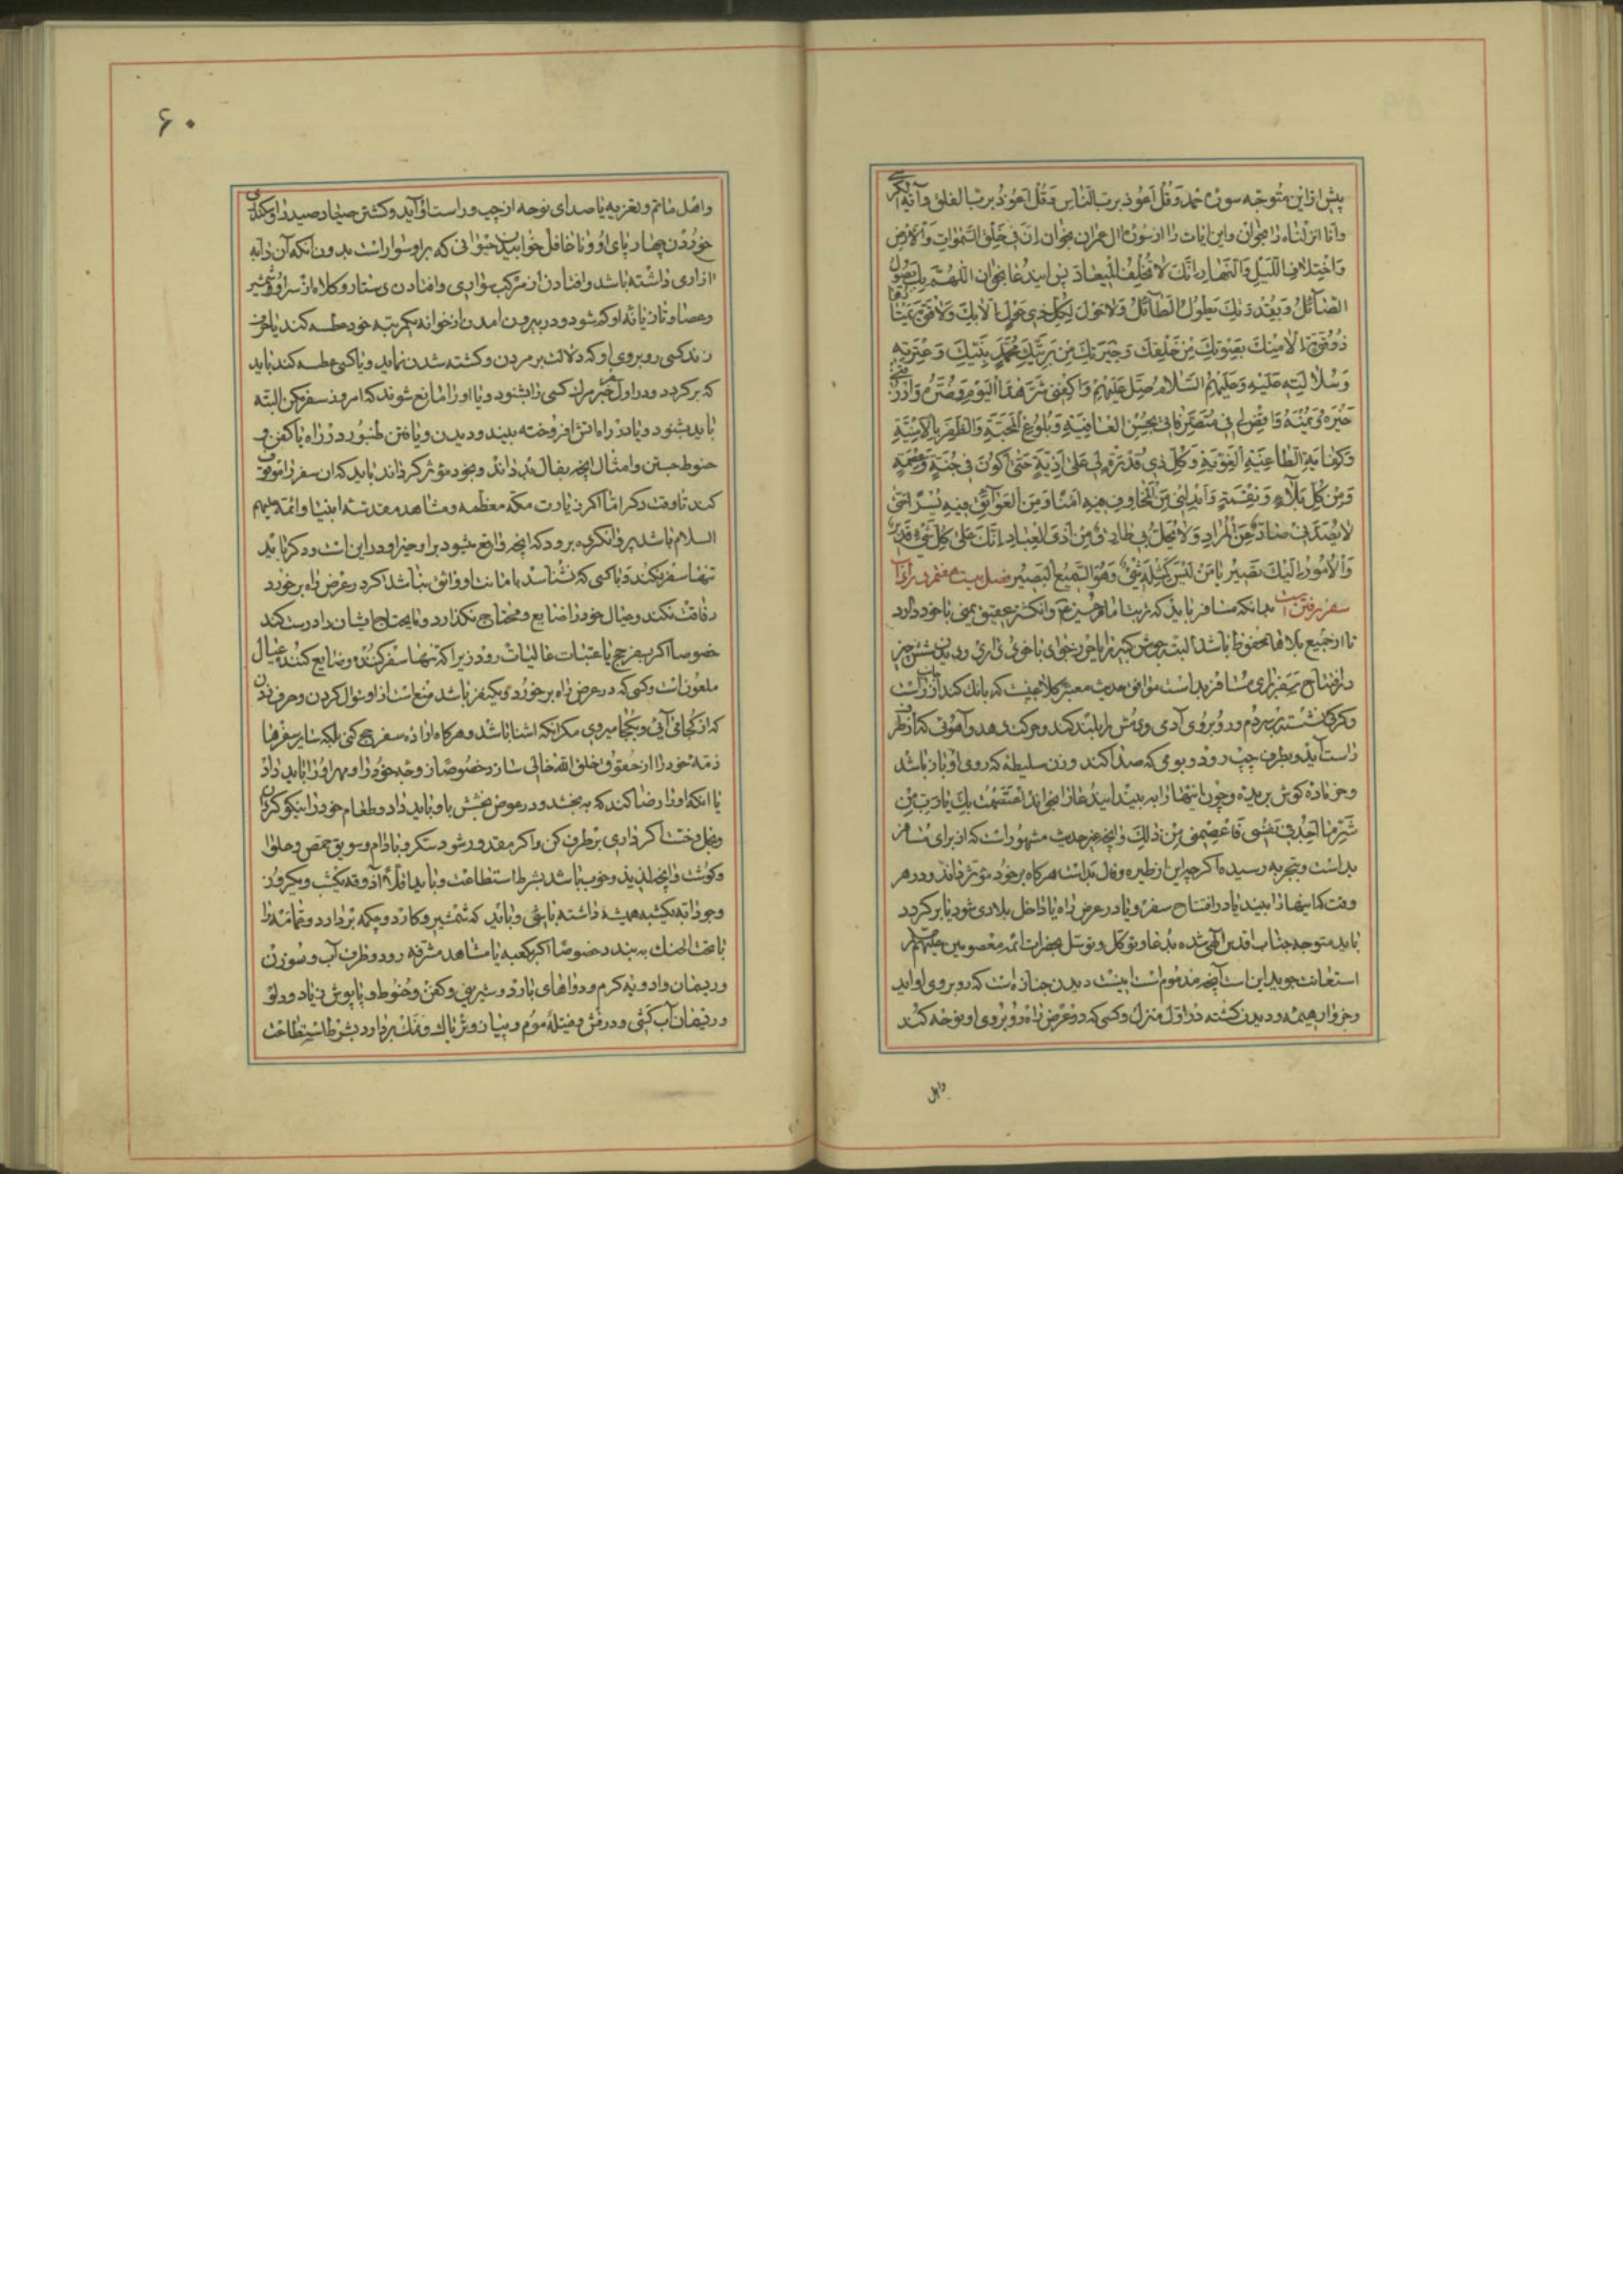 پیش از این متوجه سوره حمد و قل اعوذ برب الناس و قل اعوذ برب الفلق و آیة الکرسی
و انا انزلناه را بخوان و این ایات را از سوره ال عمران بخوان ان فی خلق السموات و الارض
و اختلاف اللیل و النهار انک لا تخلف المیعاد پس این دعا بخوان اللهم بک یصول
الصائل و بقدرتک یطول الطائل و لا حول لکل ذی حول الا بک و لا قوة یمتازها
ذو قوة الا منک بصفوتک من خلقک و خیرتک من بریتک محمد نبیک و عترته
و سلالته علیه و علیهم السلام صل علیهم و اکفنی شر هذا الیوم و ضره و ارزقنی
خیره و یمنه و اقض لی فی متصرفاتی بحسن العافیة و بلوغ المحبة و الظفر بالامنیة
و کفایة الطاغیة الغویة و کل ذی قدرة لی علی اذیة حتی اکون فی جنة و عصمة
و من کل بلاء و نقمة و ابدلنی من المخاوف فیه امنا و من العوائق فیه یسرا حتی
لا یصدنی صاد عن المراد و لا یحل بی طارق من اذی العباد انک علی کل شیء قدیر
و الامور الیک تصیر یا من لیس کمثله شیء و هو السمیع البصیر فصل بیست هفتم در اداب
سفر رفتن است بدانکه مسافر باید که تربت امام حسین ع و انکشتر عقیق یمنی با خود دارد
تا از جمیع بلاها محفوظ باشد البته جوشن کبیر را یا خود بخوانی یا خود داری و دیدن شش چیز
در افتتاح سفر برای مسافر بد است موافق حدیث معتبر کلاغیست که بانک کند از جانب راست
و کرک نشسته بر دم و در و بروی آدمی و دمش را بلند کند و حرکت دهد و آهوئی که از طرف
راست آید و بطرف چپ رود و بومی که صدا کند و زن سلیطه که روی او باز باشد
و خر ماده کوش بریده و چون اینها را به بیند این دعا را بخواند اعتصمت بک یا رب من
شر ما اجد فی نفسی فاعصمنی من ذلک و انچه غیر حدیث مشهور است که از برای مسافر
بد است و بتجربه رسیده اکر چه این از طیره و فال بد است هر کاه بر خود مؤثر داند و در هر
وقت که اینها را بیند یا در افتتاح سفر و یا در عرض راه یا داخل بلادی شود یا بر کردد
باید متوجه جناب اقدس الهی شده بدعا و توکل و توسل بحضرات ائمه معصومین علیهم السلام
استعانت جوید این است آنچه مذموم است اینست دیدن جنازه است که رو بروی او اید
و خر وار هیمه و دیدن کشته در اول منزل و کسی که در عرض راه رو بروی او نوحه کند
و اهل
۶۰
و اهل ماتم و تعزیه یا صدای نوحه از چپ و راست او آید و کشتن صیاد صید را و سکندری
خوردن چهار پای او و ناغافل خوابیدن حیوانی که بر او سوار است بدون انکه آن دابه
ازاری داشته باشد و افتادن از مرکب سواری و افتادن دستار و کلاه از سر او و شمشیر
و عصا و تازیانه او که شود و در بیرون امدن از خوانه یکمرتبه خود عطسه کند یا حرف
زند کسی رو بروی او که دلالت بر مردن و کشته شدن نماید و یا کسی عطسه کند باید
که بر کردد و در اول سفر خبر مرک کسی را بشنود و یا او را مانع شوند که امروز سفر مکن البته
باید بشنود و یا در راه اتش افروخته بیند و دیدن و یافتن طنبور در راه یا کفن و
حنوط جستن و امثال انچه بفال بد داند و بخود مؤثر کرداند باید که ان سفر را موقوف
کند تا وقت دکر اما اکر زیارت مکه معظمه و مشاهد مقدسه انبیا و ائمه علیهم
السلام باشد پروا نکرده برود که انچه واقع بشود برا و خیر او در این است و دکر باید
تنها سفر نکند و با کسی که نشناسد با امانت او واثق نباشد اکر در عرض راه بر خورد
رفاقت نکند و عیال خود را ضایع و محتاج نکذارد و مایحتاج ایشان را درست کند
خصوصا اکر بسفر حج یا عتبات عالیات رود زیرا که تنها سفر کننده و ضایع کننده عیال
ملعون است و کسی که در عرض راه بر خورد و یکنفر باشد منع است از او سؤال کردن و حرف زدن
که از کجا می آئی و بکجا میروی مکر انکه اشنا باشد و هر کاه اراده سفر حج کنی بلکه سایر سفرها
ذمه خود را از حقوق خلق الله خالی ساز و خصوصا زوجه خود را و مهر او را باید داد
یا انکه او را رضا کند که به بخشد و در عوض بخشش باو باید داد و طعام خود را نیکو کردان
و بخل و خست اکر داری بر طرف کن و اکر مقدور شود سکر و بادام و سویق حمص و حلوا
و کوشت و انچه لذیذ و خوب باشد بشرط استطاعت و باید اقلا آذوقه یکشب و یکروز
و جو دابه یکشبه همیشه داشته باشی و باید که شمشیر و کارد و چکمه بردارد و عمامه را
با تحت الحنک به بندد خصوصا اکر بکعبه یا مشاهد مشرفه رود و ظرف آب و سوزن
و ریسمان و ادویه کرم و دواهای بارد و شیرینی و کفن و حنوط و پاپوش زیاد و دلو
و ریسمان آب کشی و درفش و فتیله موم و پیاز و تریاک و نمک بردارد بشرط استطاعت